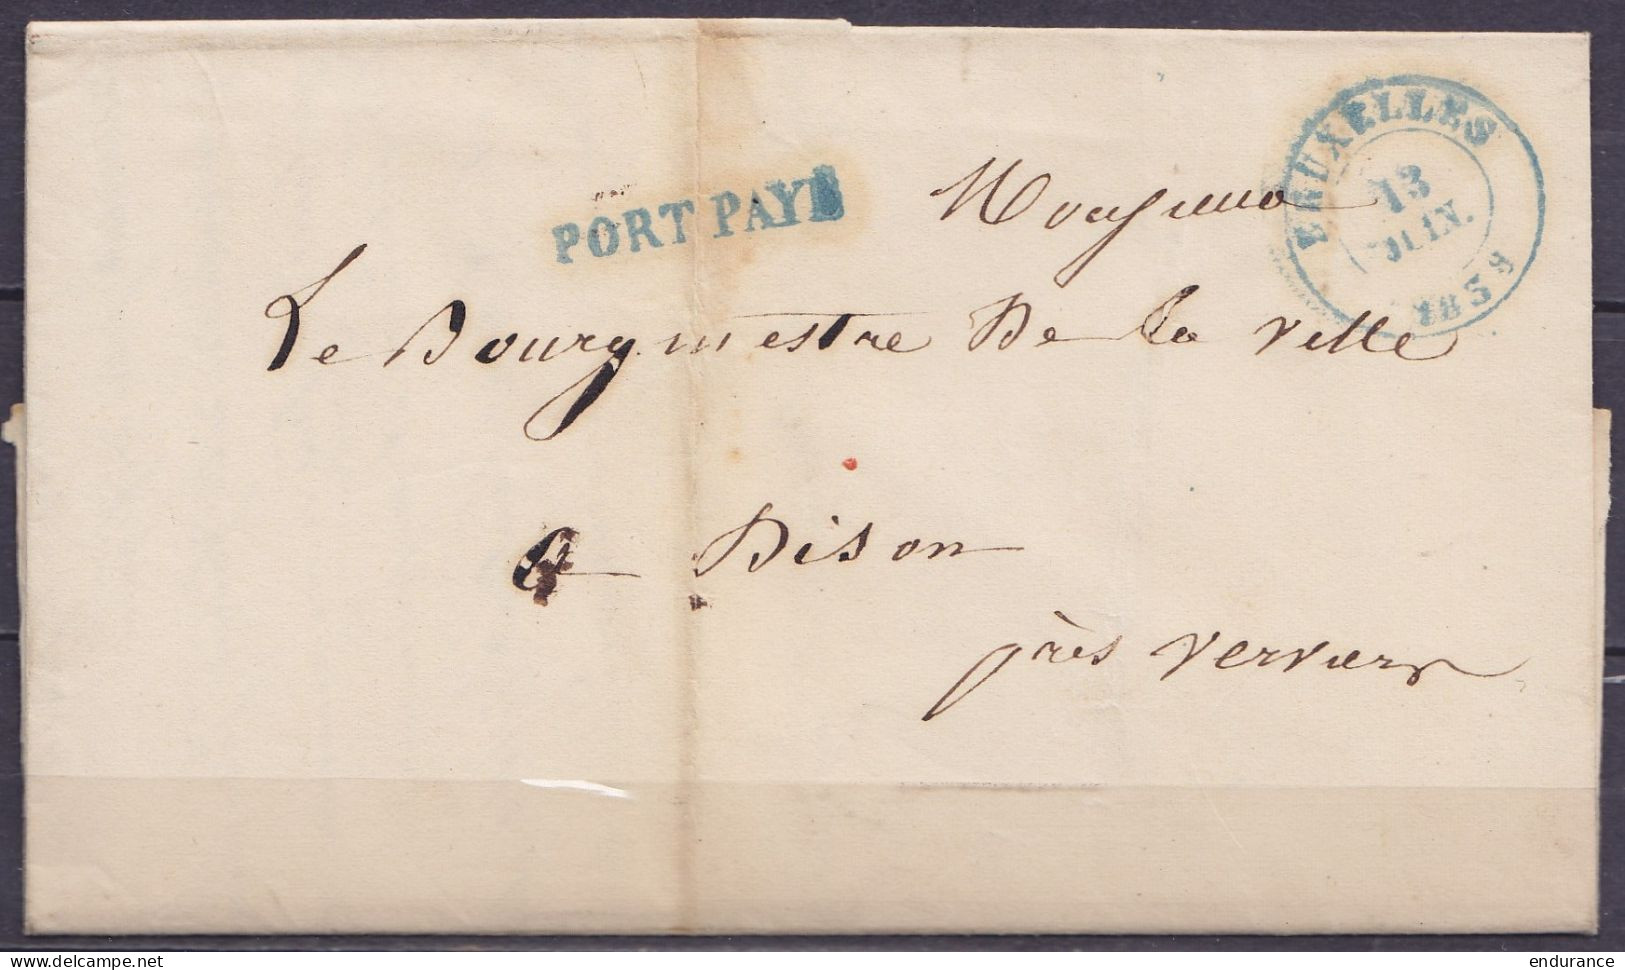 BRUXELLES
13
JUIN.
1839
PORT PAYÉ
Monsieur
Le Bourgmestre De la ville
à Dison
près Verviers
delcampe.net
endurance